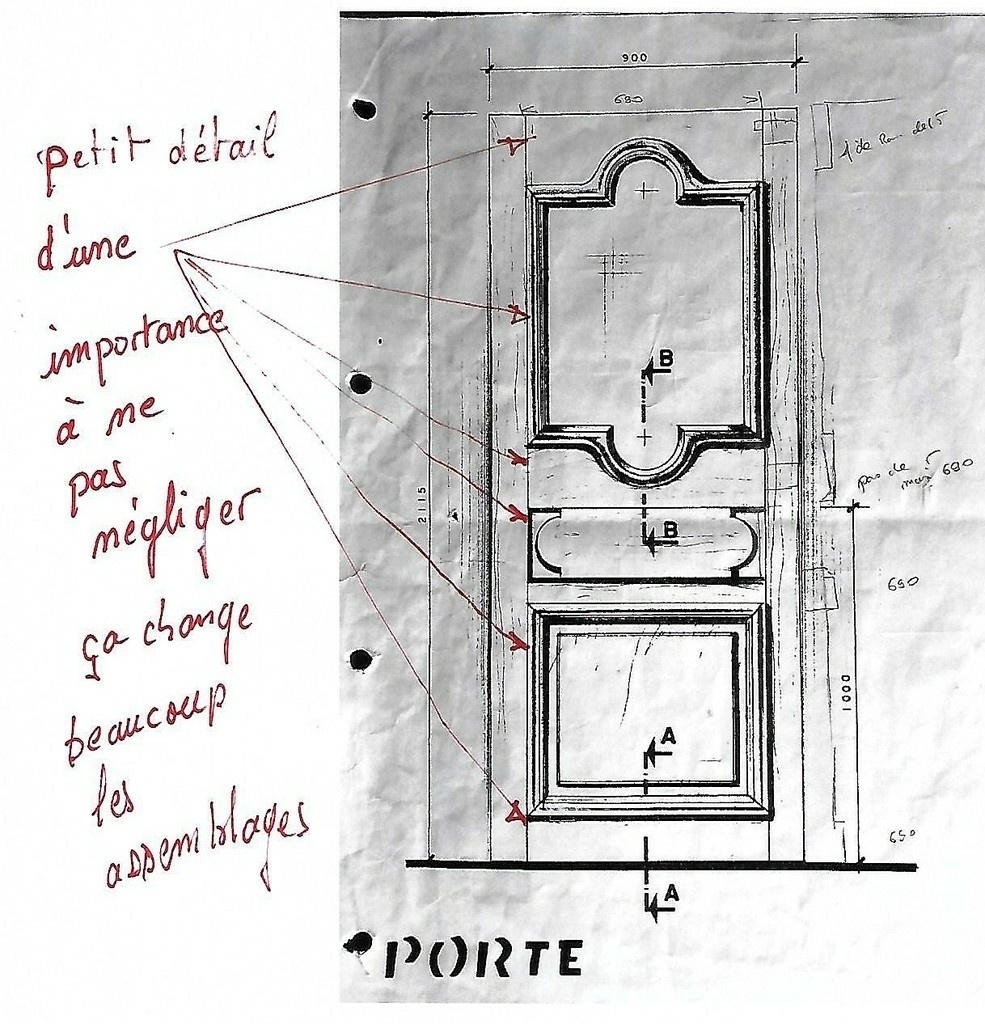 petit détail
d'une
importance
à ne
pas
négliger
ça change
beaucoup
les
assemblages
900
690
de 15
2115
B
B
pas de
mais 690
690
1000
A
650
A
PORTE